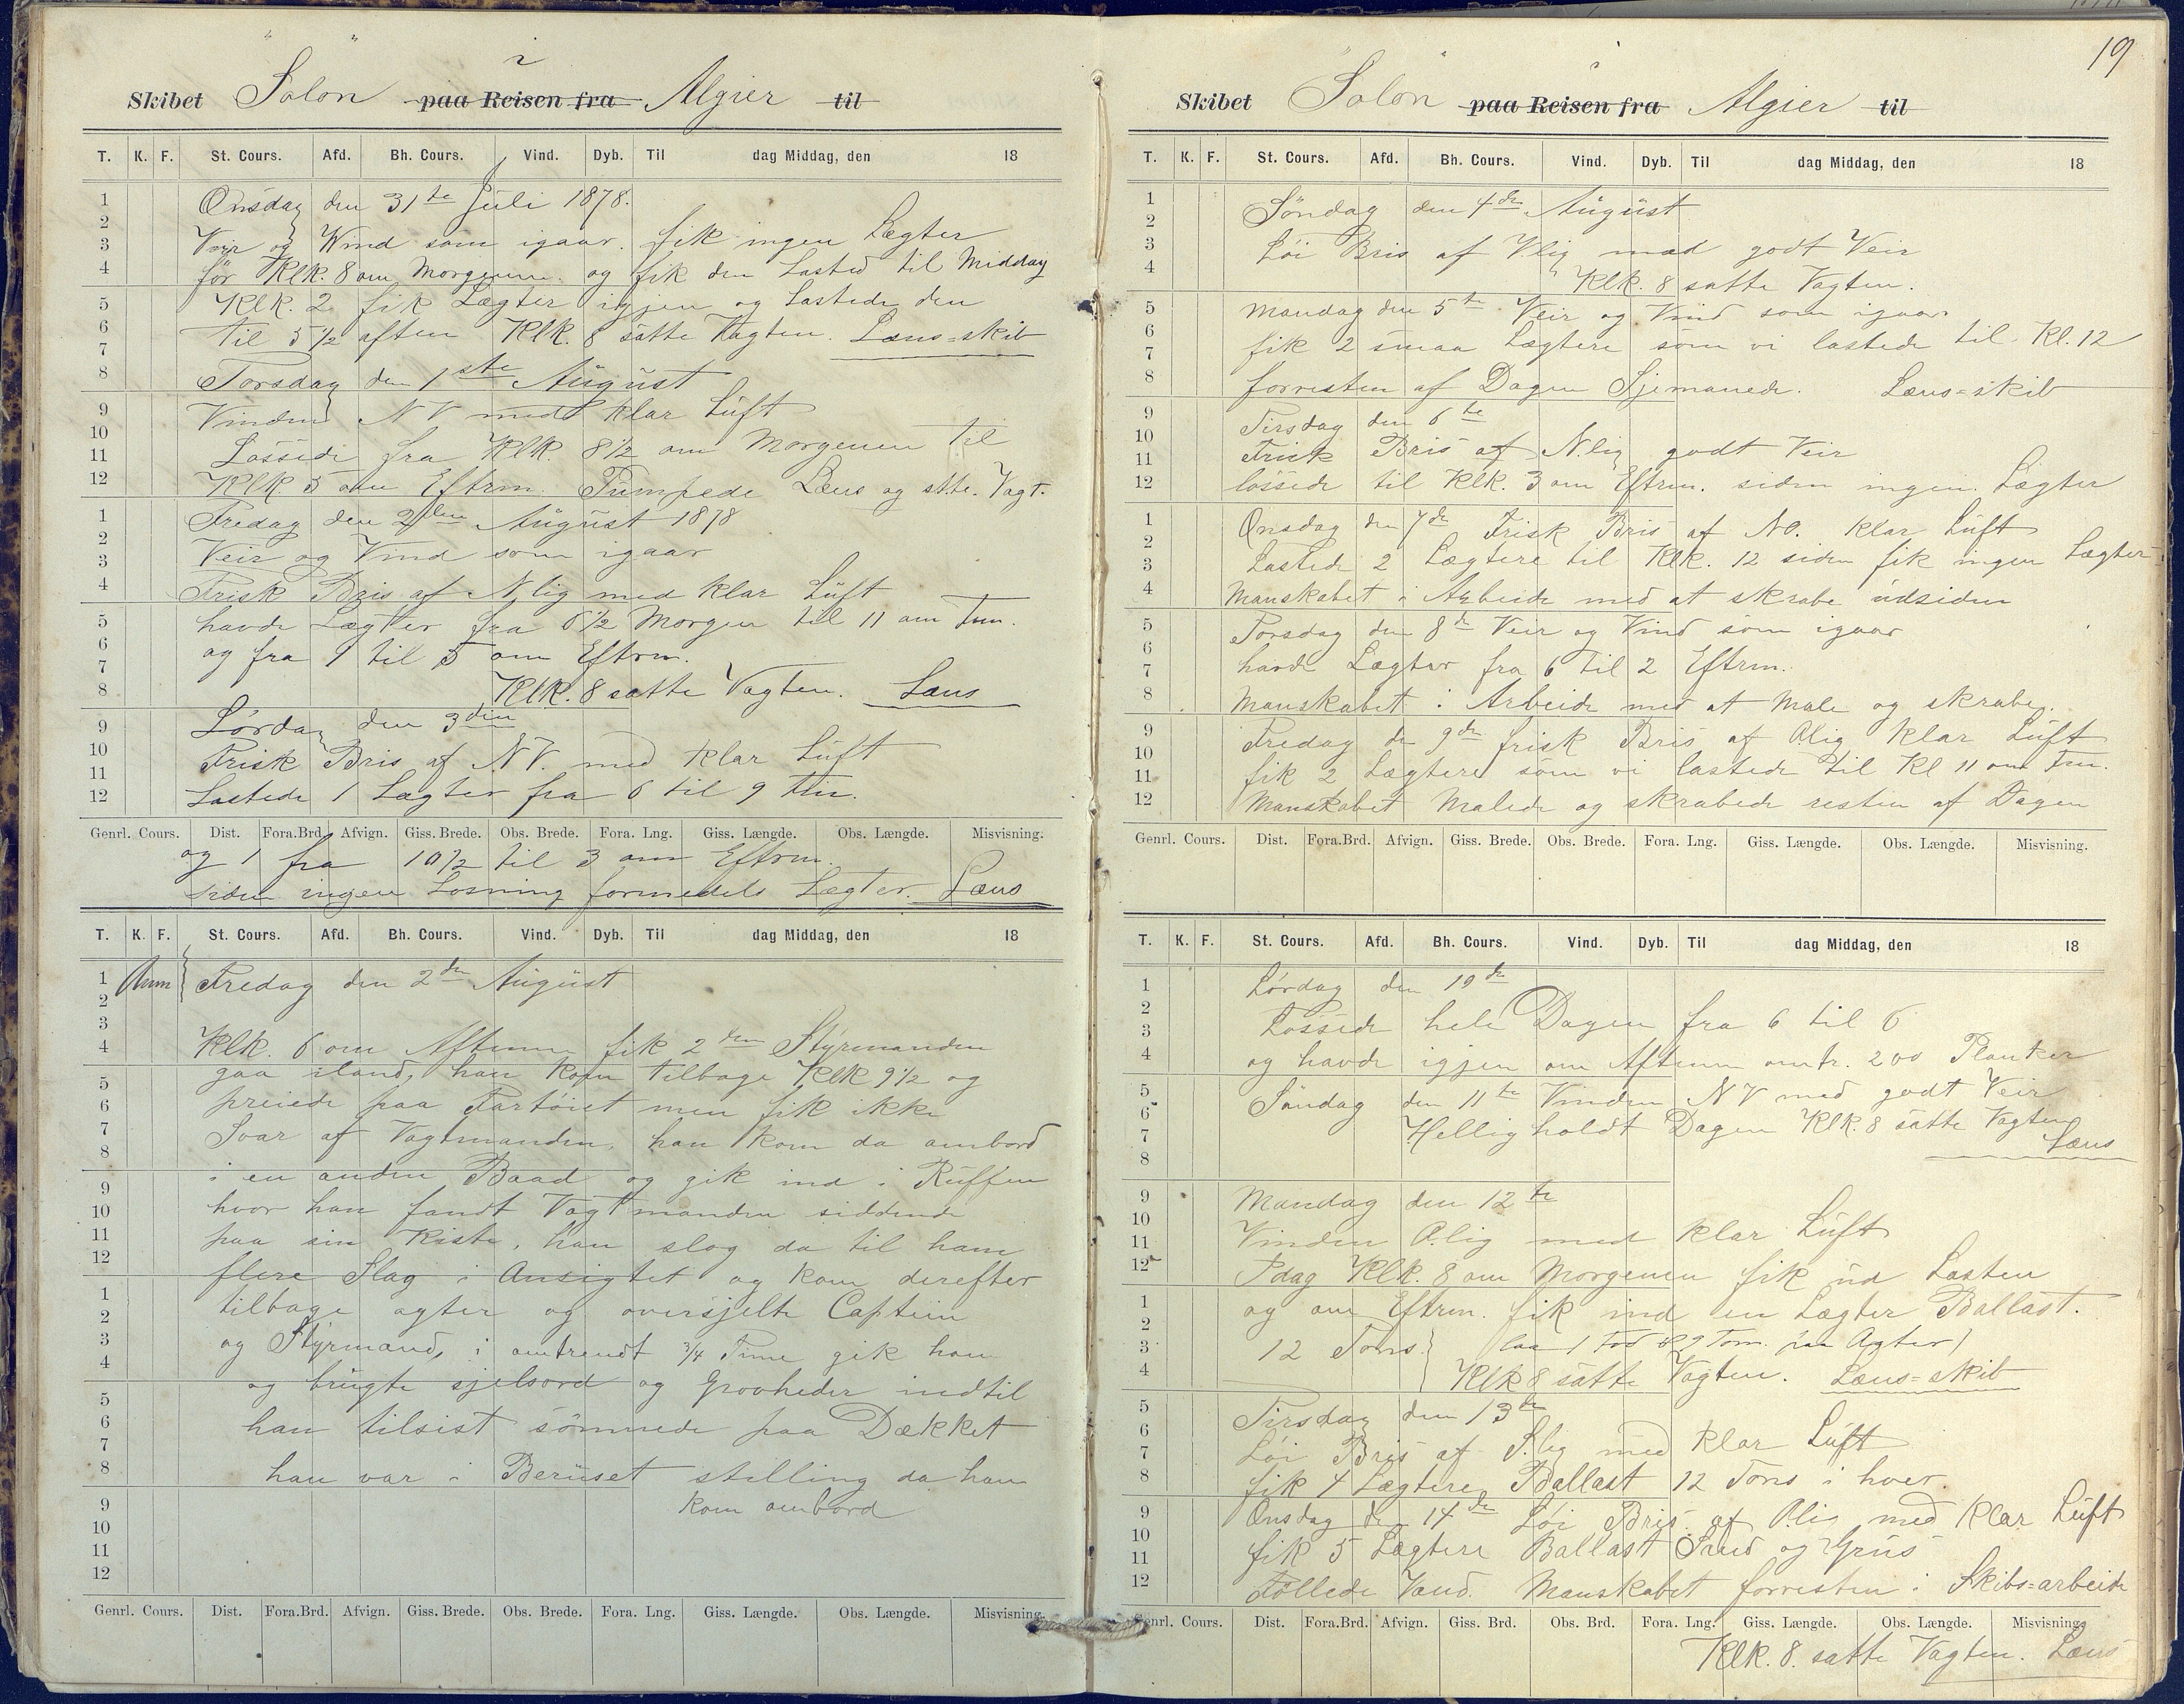 Skibet "Solon" paa Reisen fra i Algier til
T. K. F. St. Cours. Afd. Bh. Cours. Vind. Dyb. Til dag Middag, den 18
Onsdag den 31te Juli 1878.
Veir og Wind som igaar. fik ingen Lægter
før Klk. 8 om Morgenen og fik den Lasted til Middag
Klk. 2 fik Lægter igjen og Lastede den
til 5 1/2 aften Klk. 8 satte Vagten. Læns=skib
Torsdag den 1ste August
Vinden NV med klar Luft
Lossede fra Klk. 8 1/2 om Morgenen til
Klk 5 om Eftrm. Pumpede Læns og satte Vagt.
Fredag den 2den August 1878
Veir og Vind som igaar
Frisk Bris af Nlig med klar Luft
havde Lægter fra 6 1/2 Morgen til 11 om Fm.
og fra 1 til 5 om Eftrm.
Klk. 8 satte Vagten. Læns
Lørdag den 3die
Frisk Bris af NV. med klar Luft
Lastede 1 Lægter fra 6 til 9 Fm.
Genrl. Cours. Dist. Fora.Brd. Afvign. Giss. Brede. Obs. Brede. Fora. Lng. Giss. Længde. Obs. Længde. Misvisning.
og 1 fra 10 1/2 til 3 om Eftrm.
siden ingen Losning formedels Lægter. Læns
T. K. F. St. Cours. Afd. Bh. Cours. Vind. Dyb. Til dag Middag, den 18
Anm Fredag den 2den August
Klk. 6 om Aftenen fik 2den Styrmanden
gaa iland, han kom tilbage Klk 9 1/2 og
preiede paa Fartøiet men fik ikke
Svar af Vagtmanden, han kom da ombord
i en anden Baad og gik ind i Ruffen
hvor han fandt Vagtmanden siddende
paa sin Kiste, han slog da til ham
flere Slag i Ansigtet og kom derefter
tilbage agter og oversjelte Captein
og Styrmand, i omtrendt 3/4 Time gik han
og brugte sjelsord og Grovheder indtil
han tilsist sømnede paa Dækket
han var i Beruset stilling da han
kom ombord
Genrl. Cours. Dist. Fora.Brd. Afvign. Giss. Brede. Obs. Brede. Fora. Lng. Giss. Længde. Obs. Længde. Misvisning.
19
Skibet "Solon" paa Reisen fra i Algier til
T. K. F. St. Cours. Afd. Bh. Cours. Vind. Dyb. Til dag Middag, den 18
Søndag den 4de August
Løi Bris af Vlig med godt Veir
Klk. 8 satte Vagten.
Mandag den 5te Veir og Vind som igaar
fik 2 smaa Lægtere som vi lastede til Kl. 12
forresten af Dagen Sjemanede. Læns=skib
Tirsdag den 6te
Frisk Bris af Nlig godt Veir
lossede til Klk. 3 om Eftrm. siden ingen Lægter
Onsdag den 7de Frisk Bris af NO. klar Luft
Lastede 2 Lægtere til Klk. 12 siden fik ingen Lægter
Manskabet i Arbeide med at skrabe udsiden
Torsdag den 8de Veir og Vind som igaar
havde Lægter fra 6 til 2 Eftrm.
Manskabet i Arbeide med at male og skrabe.
Fredag de 9de frisk Bris af Olig klar Luft
fik 2 Lægtere som vi lastede til Kl 11 om Fm.
Manskabet Malede og skrabede resten af Dagen
Genrl. Cours. Dist. Fora.Brd. Afvign. Giss. Brede. Obs. Brede. Fora. Lng. Giss. Længde. Obs. Længde. Misvisning.
T. K. F. St. Cours. Afd. Bh. Cours. Vind. Dyb. Til dag Middag, den 18
Lørdag den 10de
Lossede hele Dagen fra 6 til 6
og havde igjen om Aftenen omtr. 200 Planker
Søndag den 11te Vinden NV med godt Veir
Helligholdt Dagen Klk. 8 satte Vagten
Læns
Mandag den 12te
Vinden Olig med klar Luft
Idag Klk. 8 om Morgenen fik ud Lasten
og om Eftrm. fik ind en Lægter Ballast.
12 Tons. laa 1 Fod 9 Tom. paa Agter)
Klk 8 satte Vagten. Læns=skib
Tirsdag den 13de
Løi Bris af Slig med klar Luft
fik 4 Lægtere Ballast 12 Tons i hver
Onsdag den 14de Løi Bris af Olig med klar Luft
fik 5 Lægtere Ballast Sand og Grus
Føllede Vand. Manskabet forresten i Skibs=arbeide
Genrl. Cours. Dist. Fora.Brd. Afvign. Giss. Brd. Obs. Brd. Fora. Lng. Giss. Længde. Obs. Længde. Misvisning.
Klk. 8. satte Vagten. Læns